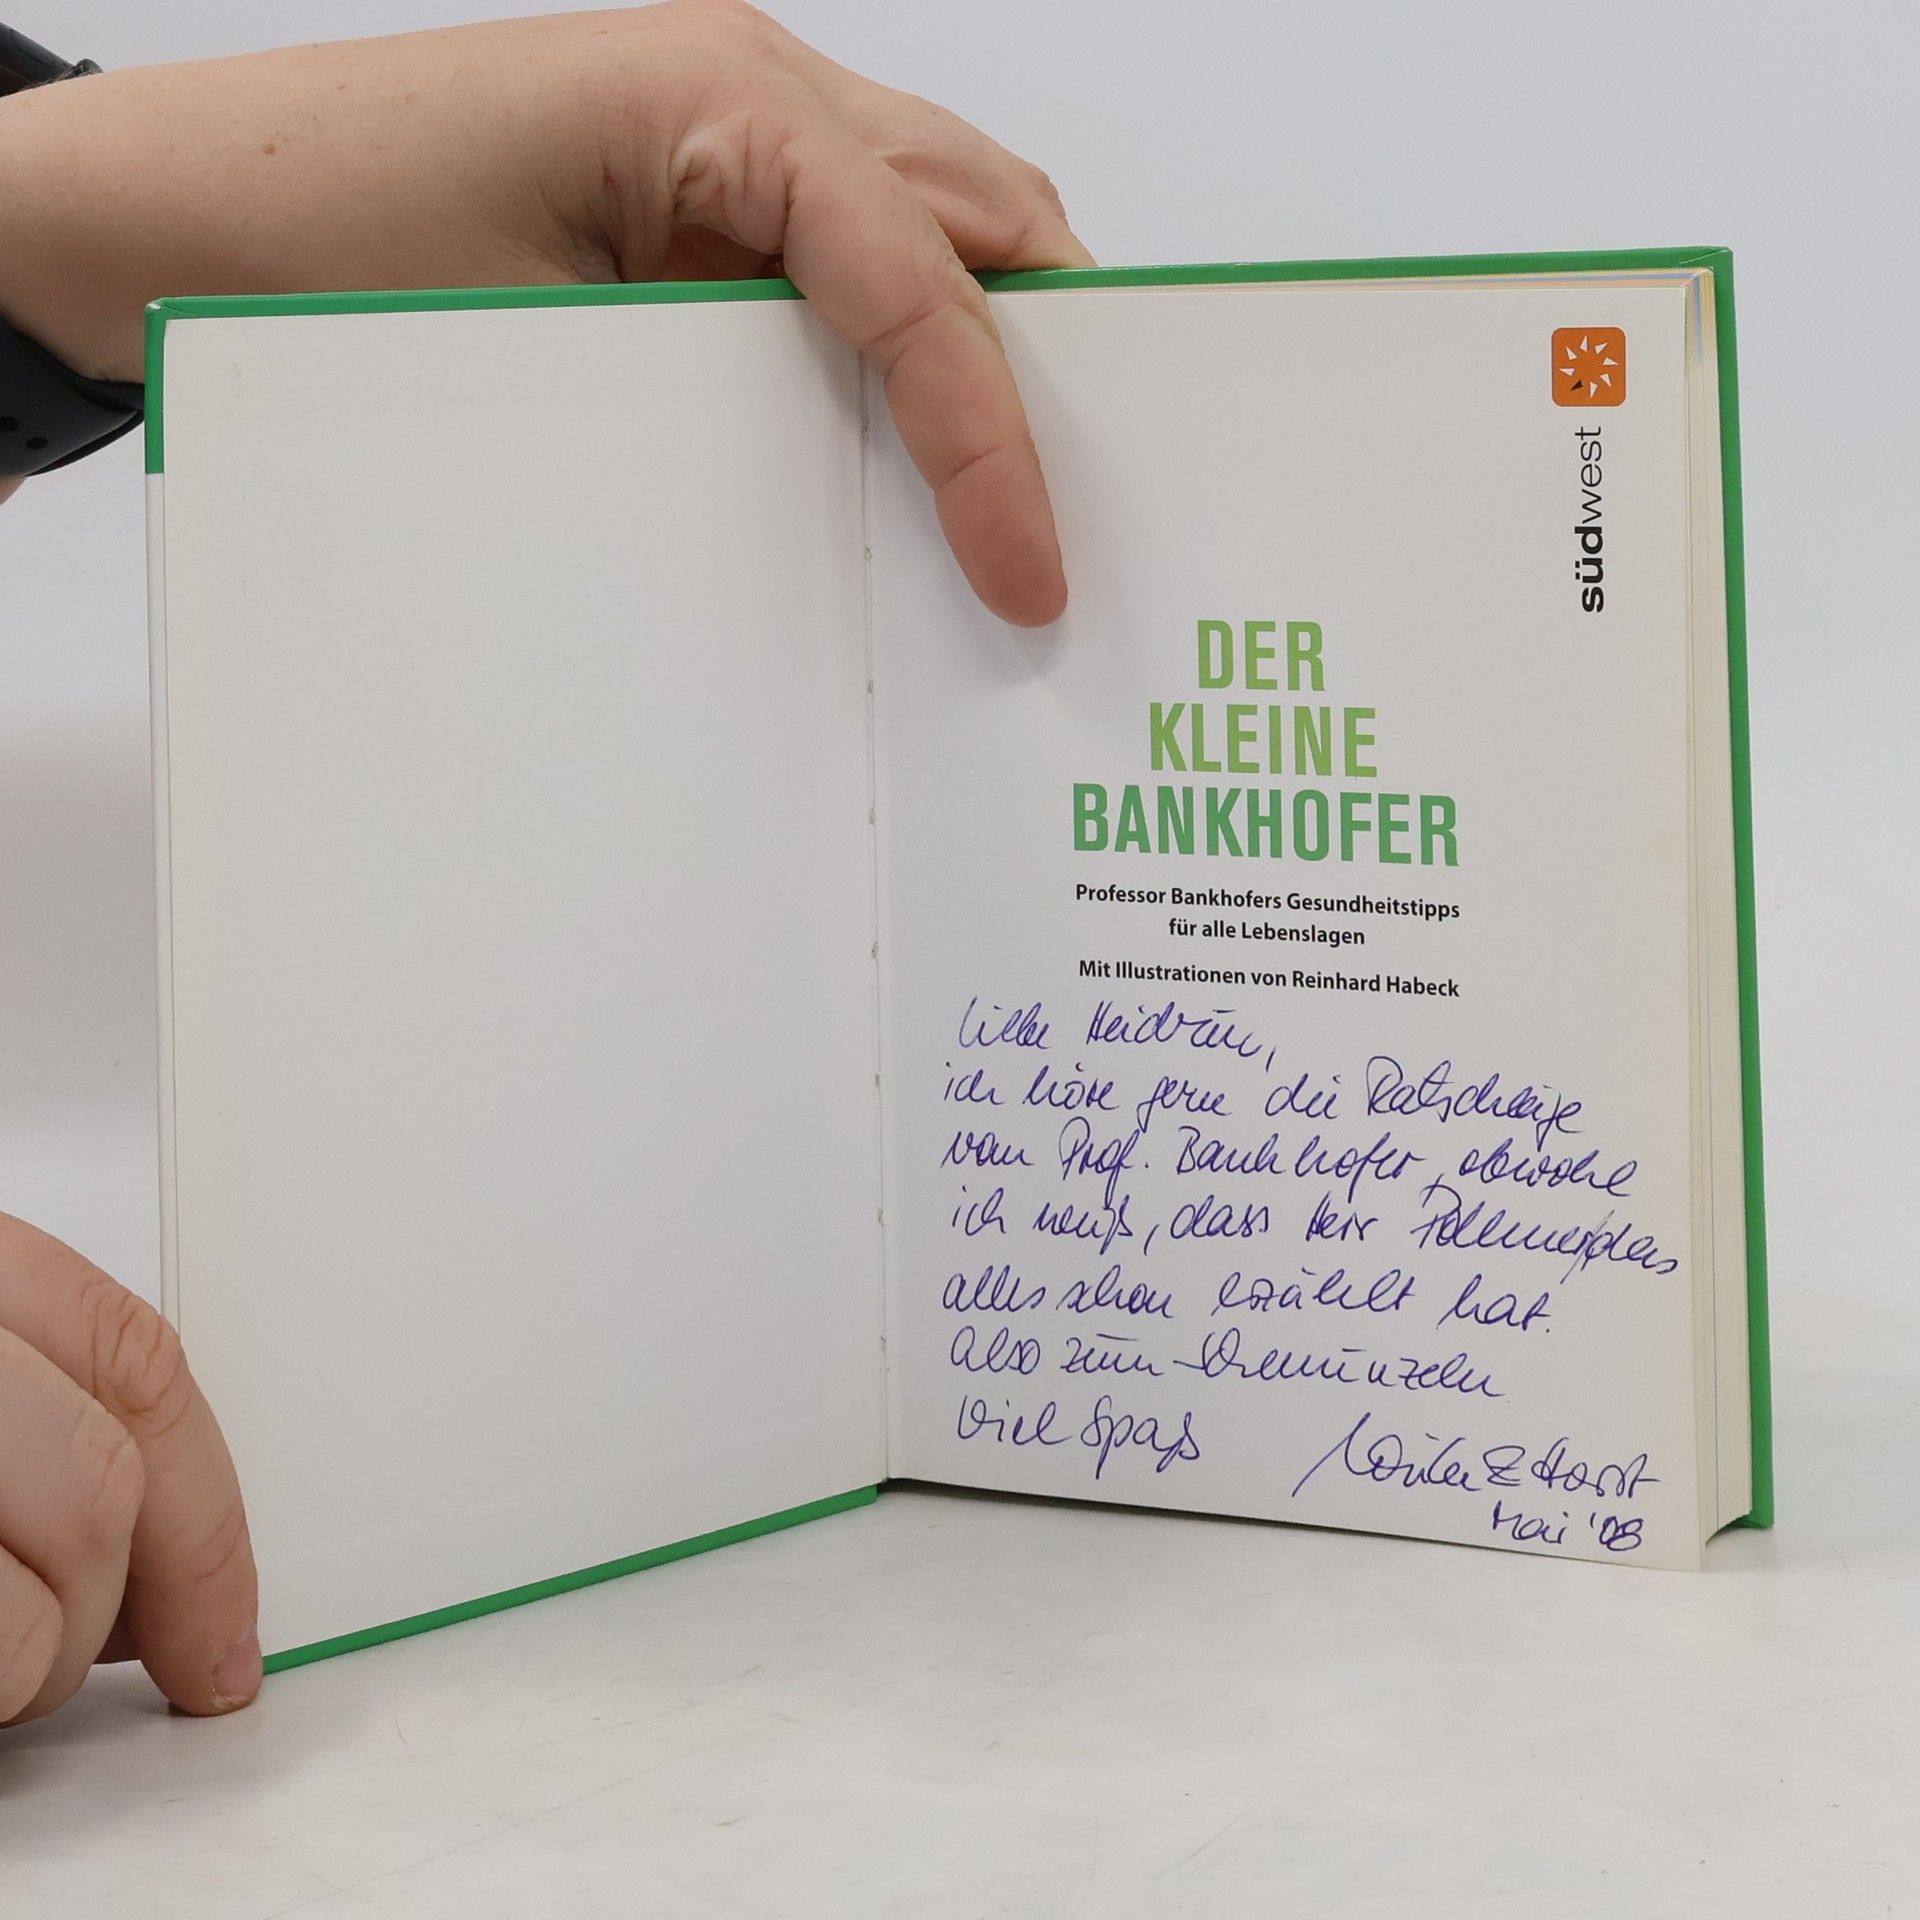 südwest
DER
KLEINE
BANKHOFER
Professor Bankhofers Gesundheitstipps
für alle Lebenslagen
Mit Illustrationen von Reinhard Habeck
Liebe Heidrun,
ich höre gern die Ratschläge
von Prof. Bankhofer, obwohl
ich weiß, dass Herr
alles schon erzählt hat.
Also zum Schmunzeln
Viel Spaß
& Horst
Mai '08